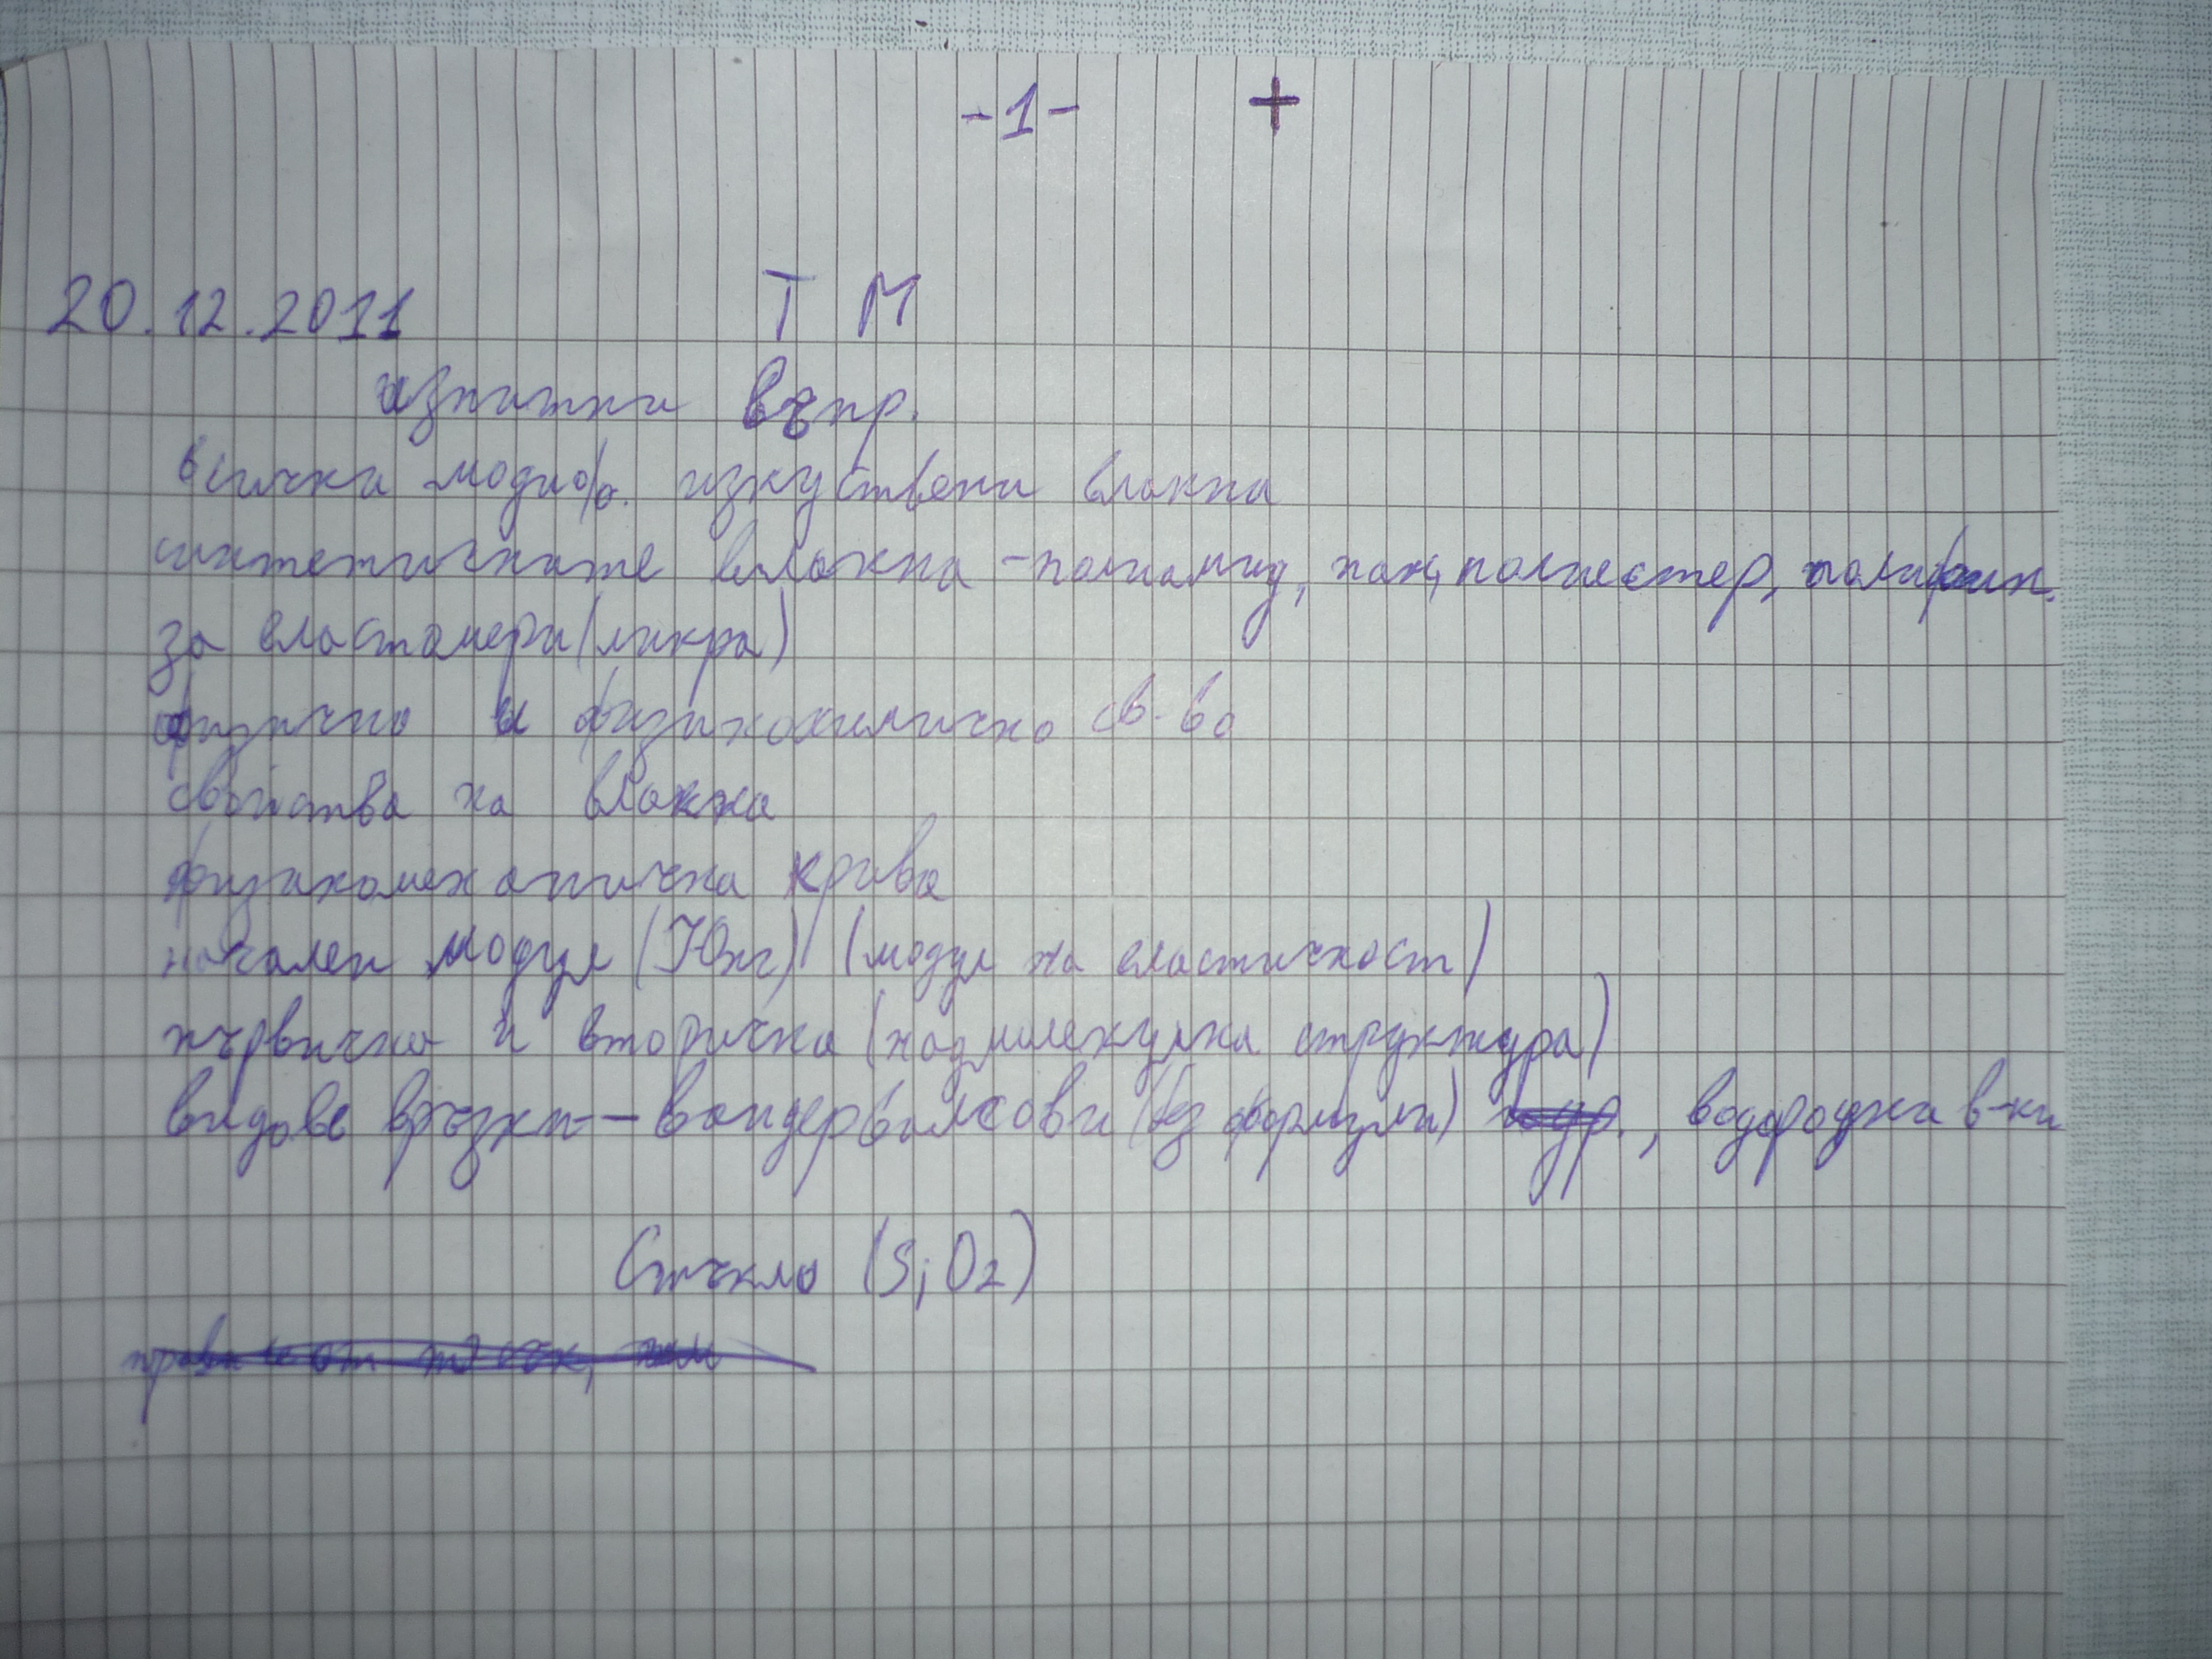 -1- +
20.12.2011 Т М
изпитни въпр.
всички модиф. изкуствени влакна
синтетичните влакна - полиамид, пан, полиестер,
за еластомери (ликра)
физично и физикохимично св-во
свойства на влакна
физикомеханична крива
начален модул (Юнг) (модул на еластичност)
първична и вторична (надмолекулна структура)
видове връзки - вандервалсови (без формули) , водородна в-ки
Стъкло (SiO2)